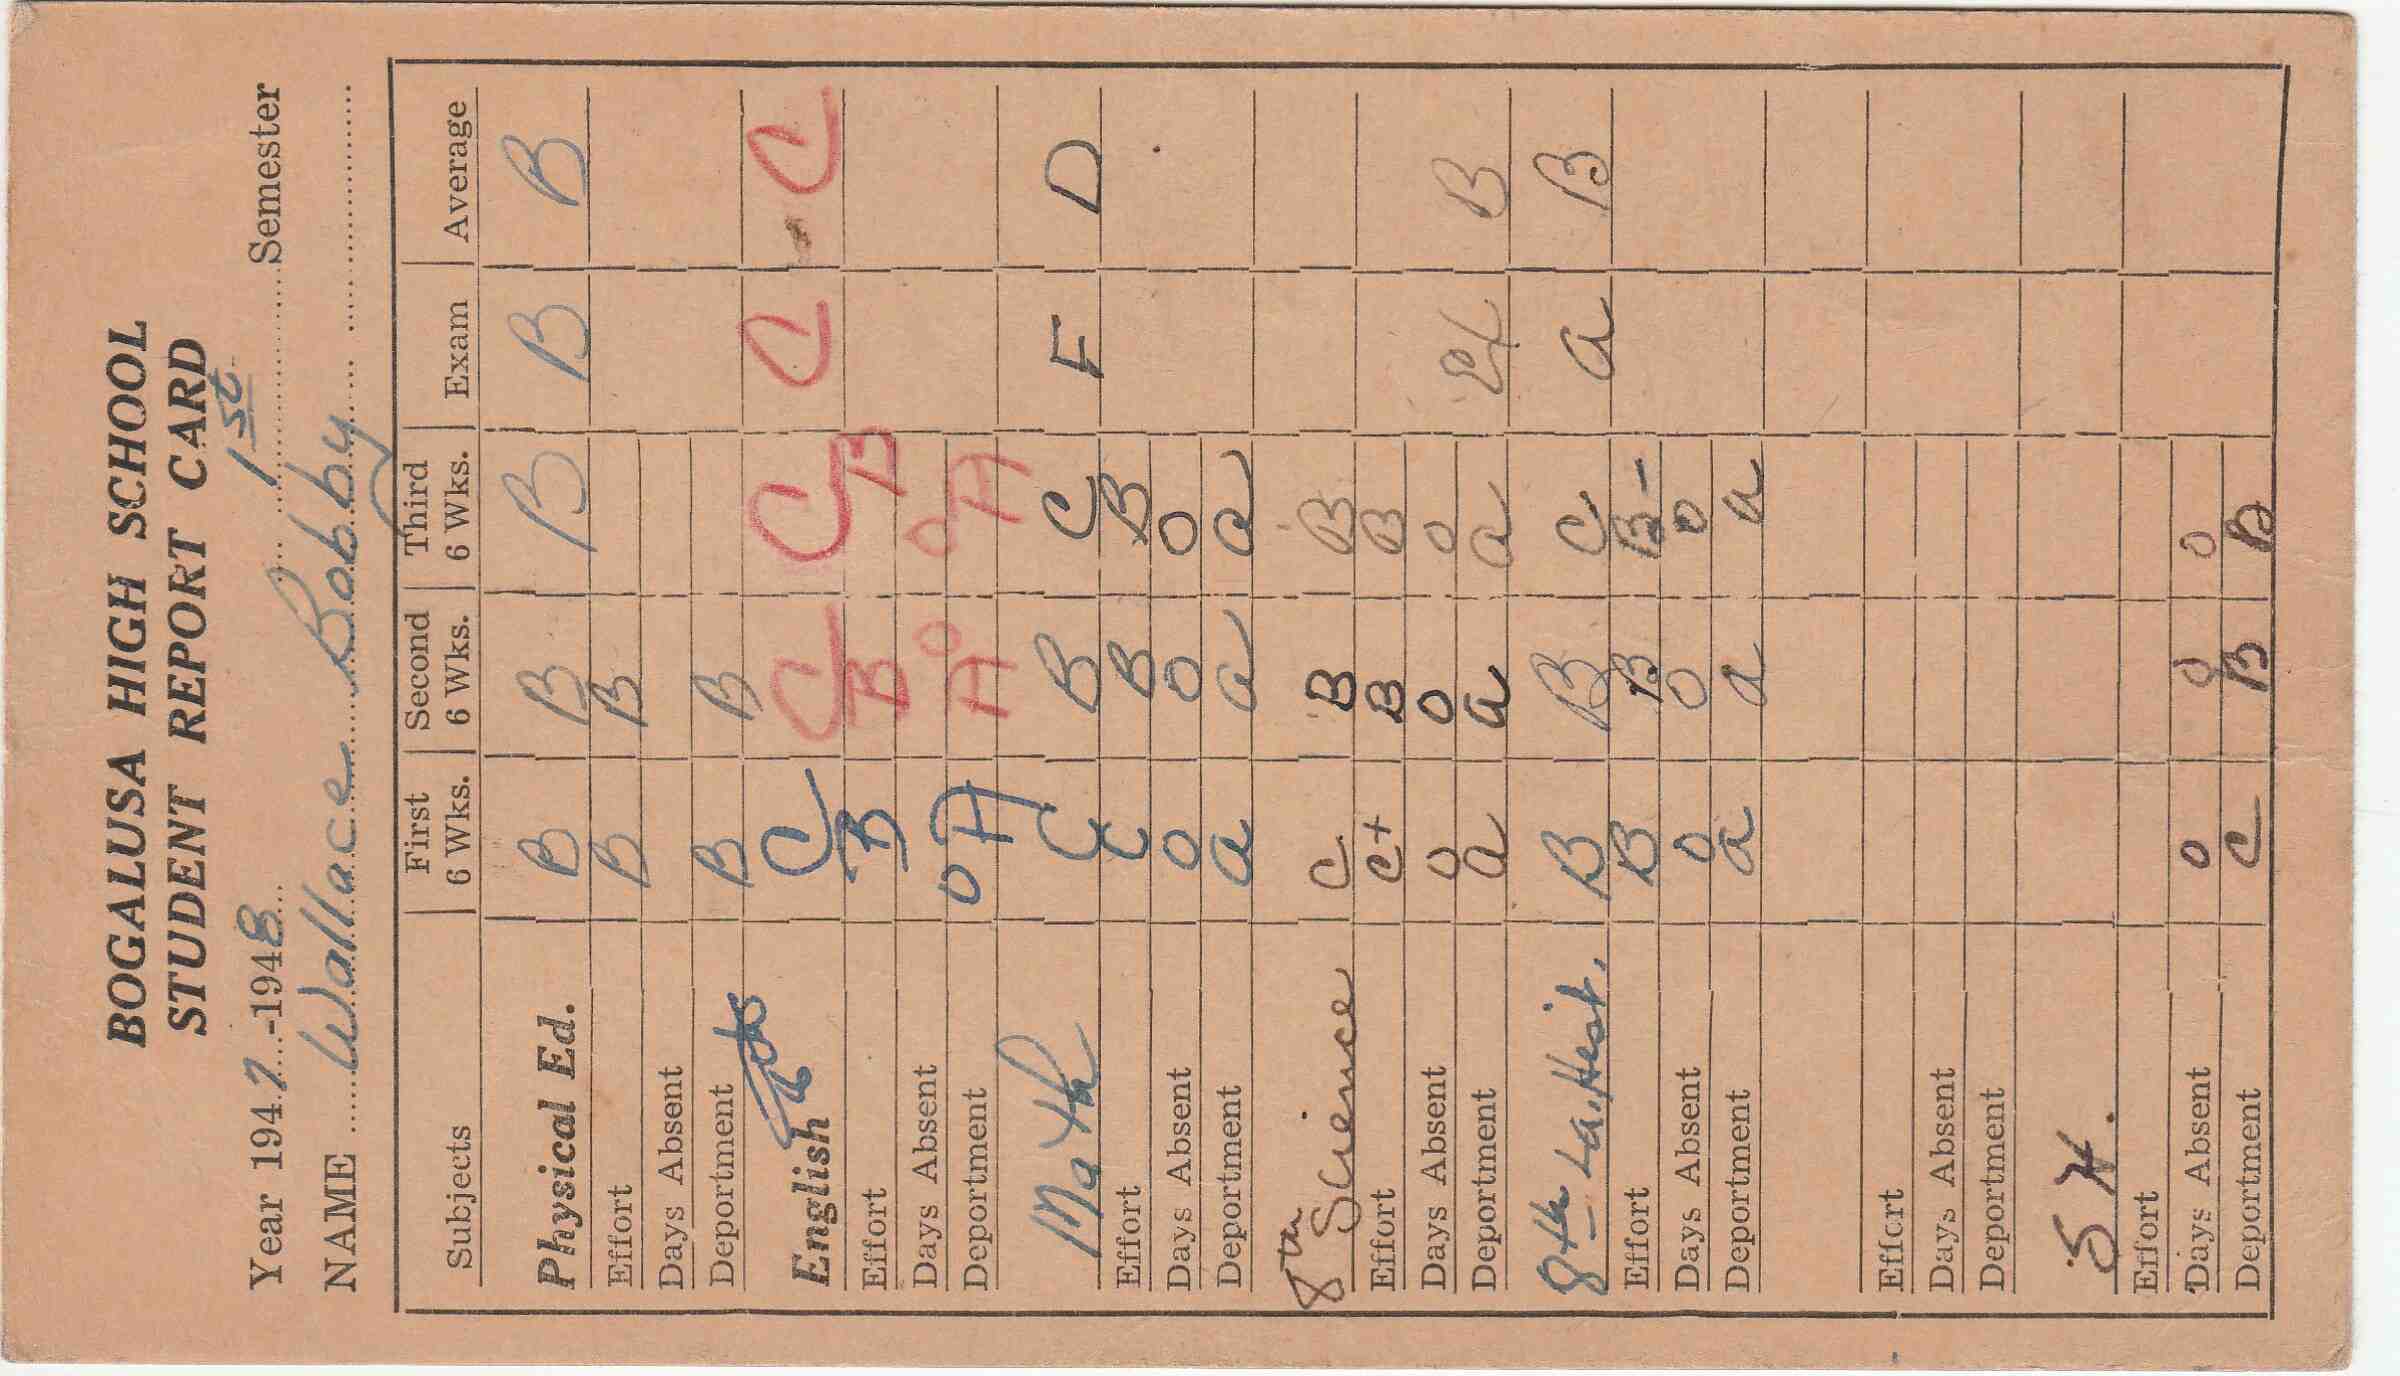 BOGALUSA HIGH SCHOOL
STUDENT REPORT CARD
Year 1947-1948 1st Semester
NAME Wallace Bobby
Subjects First 6 Wks. Second 6 Wks. Third 6 Wks. Exam Average
Physical Ed. B B B B B
Effort B B
Days Absent
Deportment B B
English C C C C C
Effort B B B
Days Absent 0 0 0
Deportment A A A
Math C B C F D
Effort C B B
Days Absent 0 0 0
Deportment a a a
8th Science C B B
Effort C+ B B
Days Absent 0 0 0
Deportment a a a Ex B
8th La. Hist. B B C a B
Effort B B B-
Days Absent 0 0 0
Deportment a a a
Effort
Days Absent
Deportment
S H.
Effort
Days Absent 0 0 0
Deportment C B B